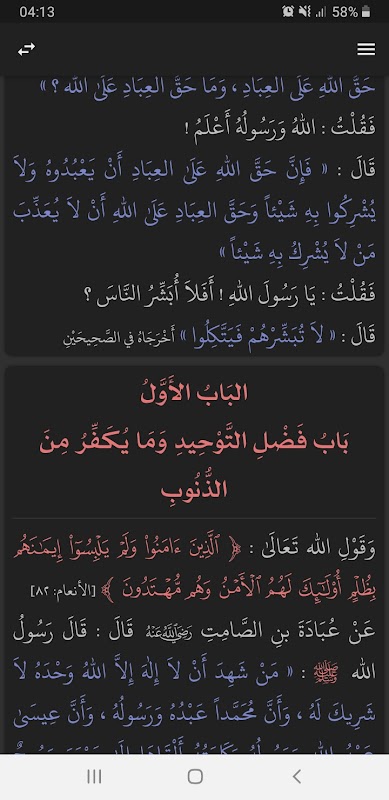 04:13
58%
حَقُّ اللهِ عَلَى العِبَادِ ، وَمَا حَقُّ العِبَادِ عَلَى اللهِ ؟ »
فَقُلْتُ : اللهُ وَرَسُولُهُ أَعْلَمُ !
قَالَ : « فَإِنَّ حَقَّ اللهِ عَلَى العِبَادِ أَنْ يَعْبُدُوهُ وَلاَ
يُشْرِكُوا بِهِ شَيْئاً وَحَقَّ العِبَادِ عَلَى اللهِ أَنْ لاَ يُعَذِّبَ
مَنْ لاَ يُشْرِكُ بِهِ شَيْئاً »
فَقُلْتُ : يَا رَسُولَ اللهِ ! أَفَلاَ أُبَشِّرُ النَّاسَ ؟
قَالَ : « لاَ تُبَشِّرْهُمْ فَيَتَّكِلُوا » أَخْرَجَاهُ فِي الصَّحِيحَيْنِ
البَابُ الأَوَّلُ
بَابُ فَضْلِ التَّوْحِيدِ وَمَا يُكَفِّرُ مِنَ
الذُّنُوبِ
وَقَوْلِ الله تَعَالَى : ﴿ ٱلَّذِينَ ءَامَنُواْ وَلَمْ يَلْبِسُوٓاْ إِيمَـٰنَهُم
بِظُلْمٍ أُوْلَـٰٓئِكَ لَهُمُ ٱلْأَمْنُ وَهُم مُّهْتَدُونَ ﴾ [الأنعام: ٨٢]
عَنْ عُبَادَةَ بنِ الصَّامِتِ رَضِيَ اللَّهُ عَنْهُ قَالَ : قَالَ رَسُولُ
الله ﷺ : « مَنْ شَهِدَ أَنْ لاَ إِلَهَ إِلاَّ اللهُ وَحْدَهُ لاَ
شَرِيكَ لَهُ ، وَأَنَّ مُحَمَّداً عَبْدُهُ وَرَسُولُهُ ، وَأَنَّ عِيسَى